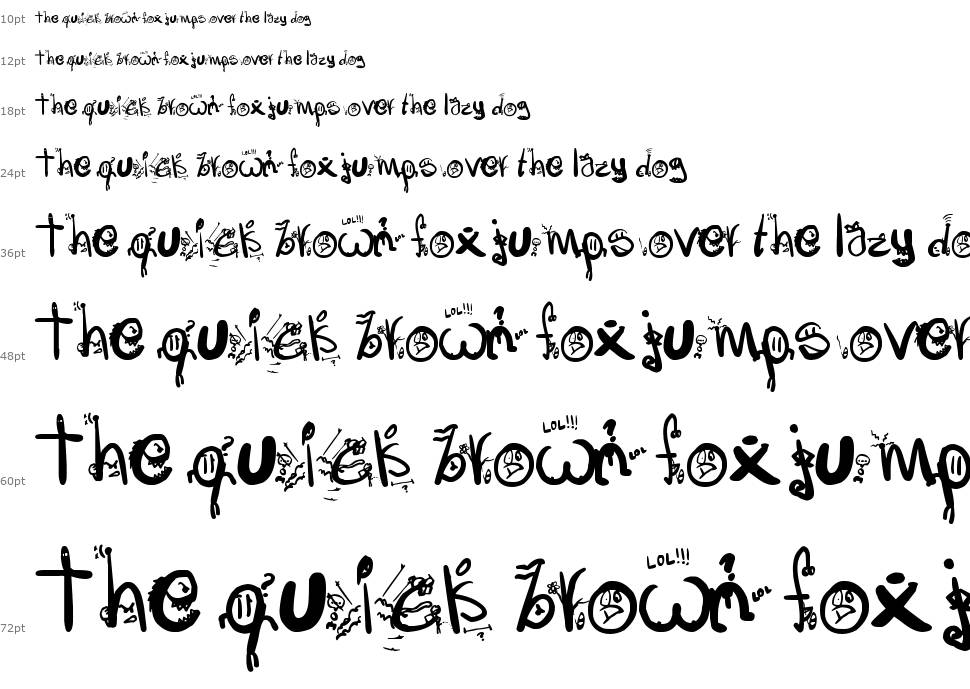 10pt the quick brown fox jumps over the lazy dog
12pt the quick brown fox jumps over the lazy dog
18pt the quick brown fox jumps over the lazy dog
24pt the quick brown fox jumps over the lazy dog
36pt the quick brown fox jumps over the lazy do
48pt the quick brown fox jumps over
60pt the quick brown fox jump
72pt the quick brown fox j